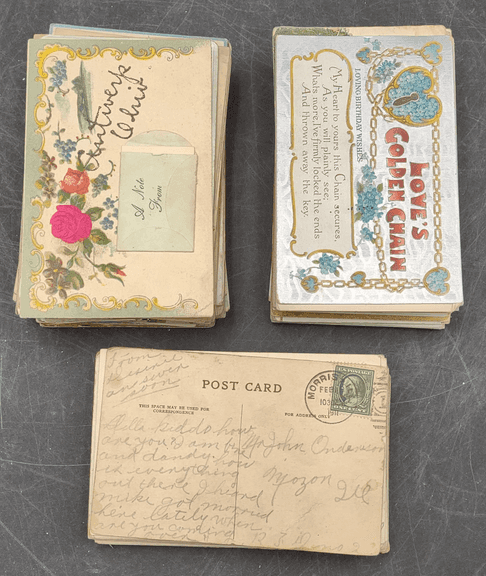 Antwerp
Ohio
A Note
From
LOVE'S
GOLDEN CHAIN
LOVING BIRTHDAY WISHES
My Heart to yours this Chain secures
As you will plainly see;
Whats more, I've firmly locked the ends
And thrown away the key.
from
answer
soon
POST CARD
THIS SPACE MAY BE USED FOR
CORRESPONDENCE
FOR ADDRESS ONLY
MORRIS
FEB
1030
U.S. POSTAGE
ONE CENT
Hello Kiddo how
are you I am
and dandy. how
is everything
out there I heard
make got married
here lately when
are you coming
over
Mr John Anderson
Mozon
Ill
R.F.D.